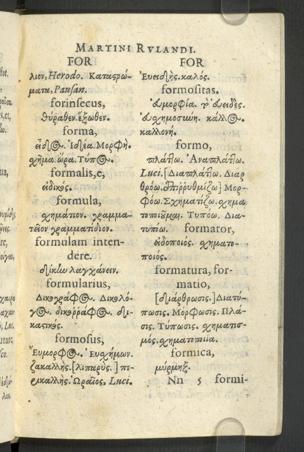 MARTINI RVLANDI.
FOR
λιον, Herodo. Καταςρώ-
ματα, Pausan.
forinsecus,
θύραθεν. ἔξωθεν.
forma,
εἶδος. ἰδέα. Μορφή.
χῆμα. ὥρα. Τύπος.
formalis, e,
εἰδικός.
formula,
χημάτιον. γραμμα-
τεῖον γραμματίδιον.
formulam inten-
dere.
δίκην λαγχάνειν.
formularius,
Δικογράφος. Δικολό-
γος. δικορράφος. δι-
καςικός.
formosus,
Εὔμορφος. Εὐχήμων.
[λιπαρὸς.] πε-
ρικαλλής. Ὡραῖος. Luci.
FOR
Εὐειδής. καλός.
formositas.
εὐμορφία. τὸ εὐειδές.
εὐχημοσύνη. κάλλος.
καλλονή.
formo,
πλάττω. Ἀναπλάττω.
Luci. [Διαπλάττω. Διαρ-
θρόω. ἐπιρρυθμίζω] Μορ-
φόω. Σχηματίζω. χημα-
Τυπόω. Δια-
τυπόω. formator,
εἰδοποιός. χηματο-
ποιός.
formatura, for-
matio,
[διάρθρωσις.] Διατύ-
πωσις. Μόρφωσις. Πλά-
σις. Τύπωσις. χηματισ-
μός. χηματοποιία.
formica,
μύρμηξ.
Nn 5 formi-